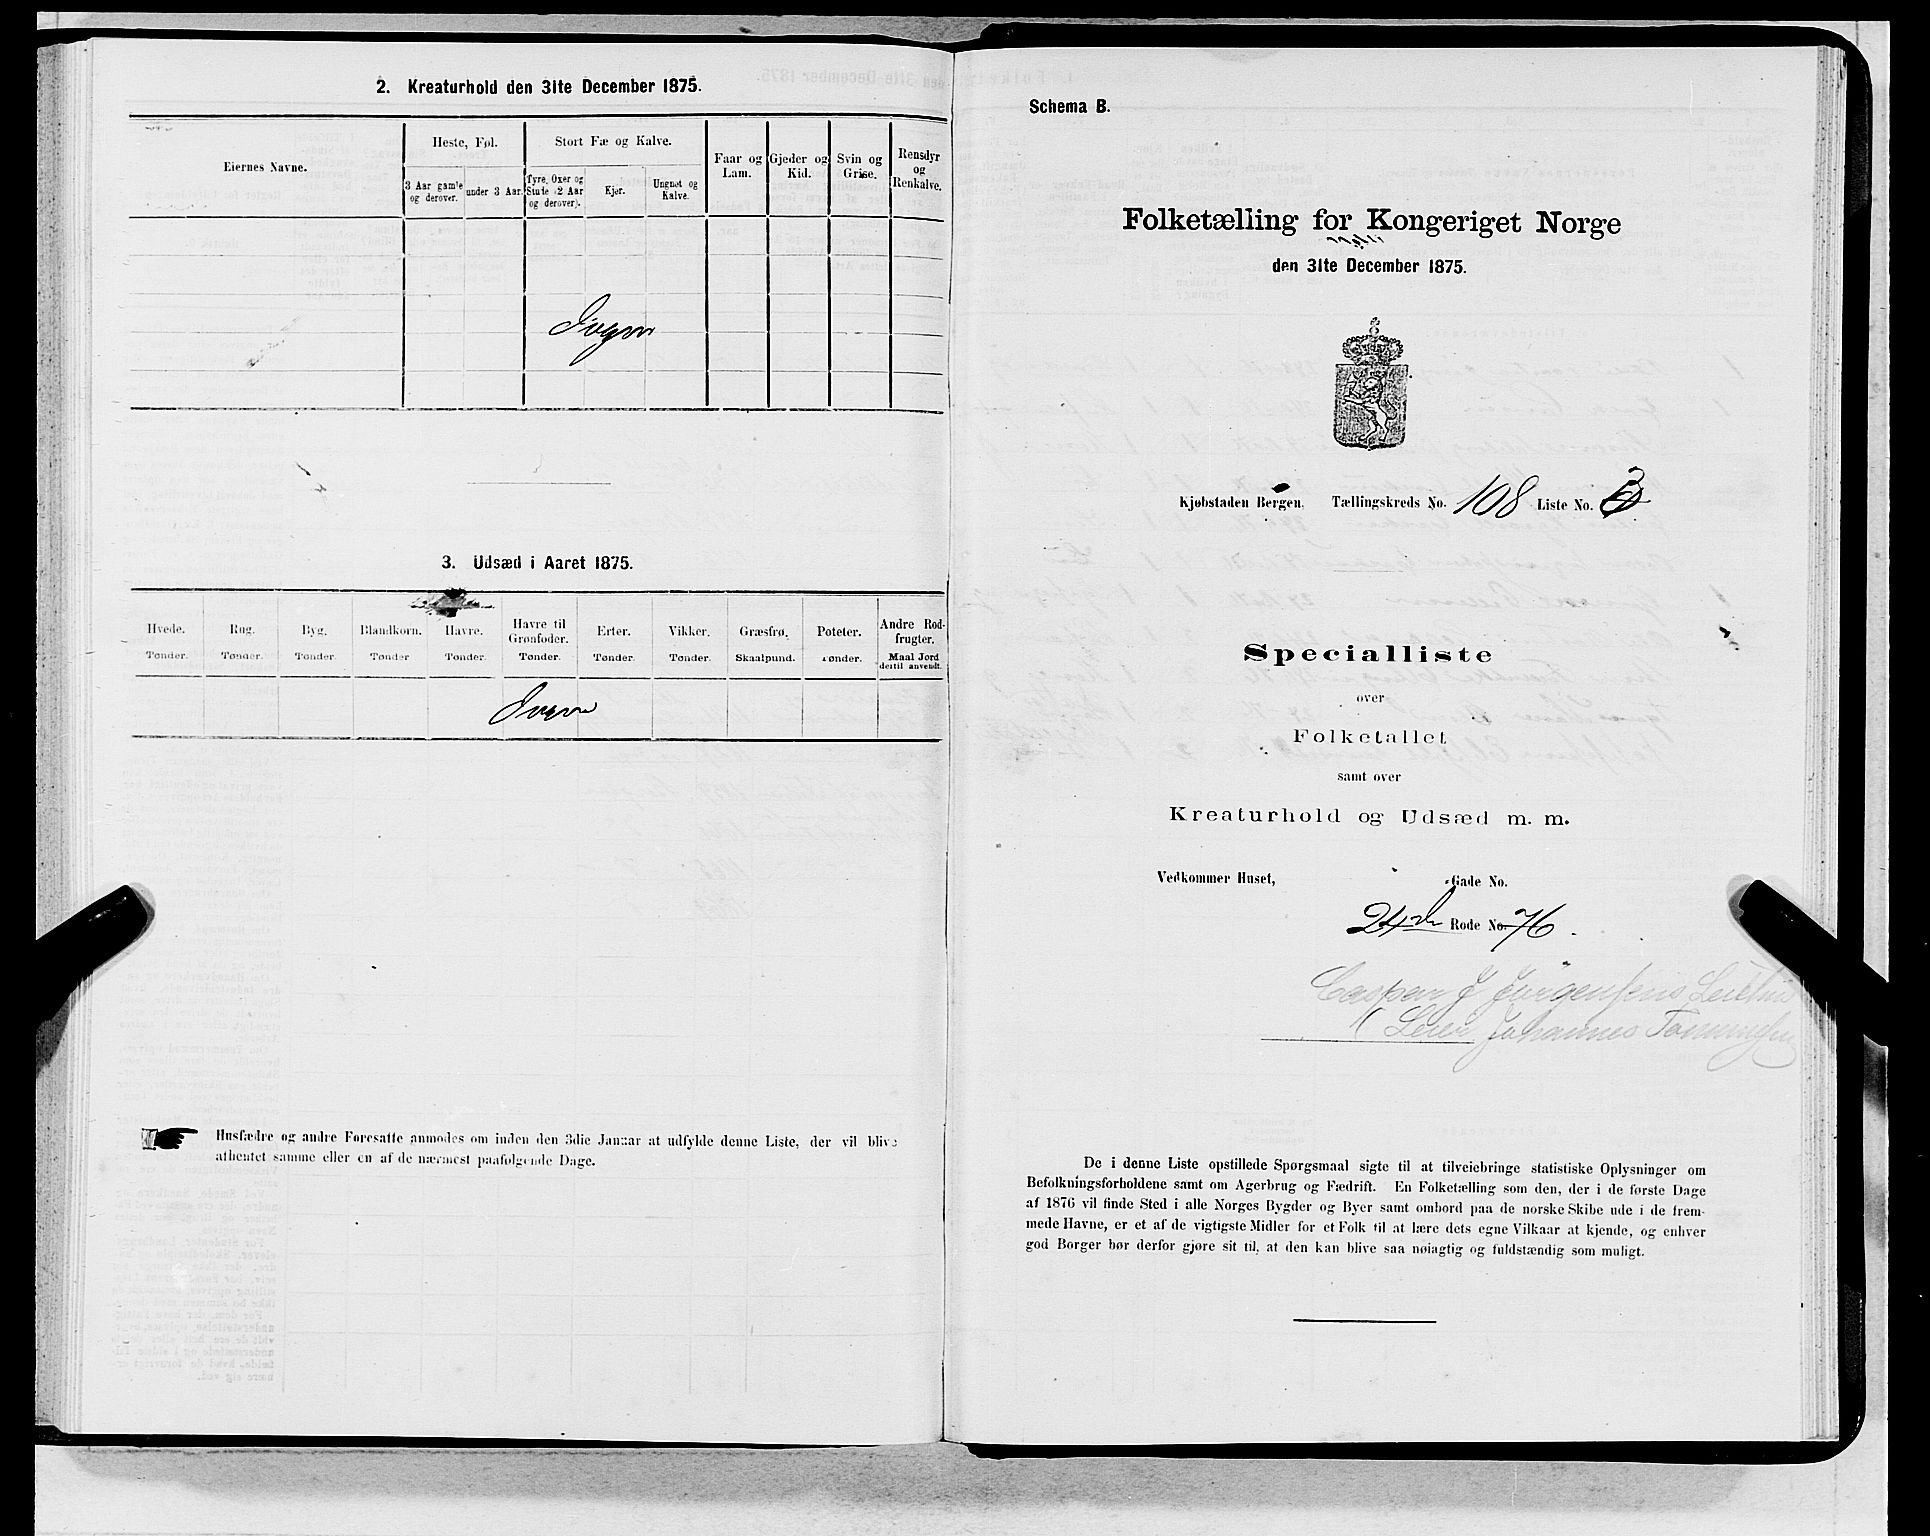 2. Kreaturhold den 31te December 1875.
Eiernes Navne.
Heste, Føl.
3 Aar gamle og derover.
under 3 Aar.
Stort Fæ og Kalve.
Tyre, Oxer og Stude (2 Aar og derover).
Kjør.
Ungnøt og Kalve.
Faar og Lam.
Gjeder og Kid.
Svin og Grise.
Rensdyr og Renkalve.
Ingen
3. Udsæd i Aaret 1875.
Hvede. Rug. Byg. Blandkorn. Havre. Havre til Grønfoder. Erter. Vikker. Græsfrø. Poteter. Andre Rodfrugter.
Tønder. Tønder. Tønder. Tønder Tønder. Tønder. Tønder. Tønder. Skaalpund. Tønder. Maal Jord dertil anvendt.
Ingen
Husfædre og andre Foresatte anmodes om inden den 3die Januar at udfylde denne Liste, der vil blive
afhentet samme eller en af de nærmest paafølgende Dage.
Schema B.
Folketælling for Kongeriget Norge
den 31te December 1875.
Kjøbstaden Bergen. Tællingskreds No. 108 Liste No. 3
Specialliste
over
Folketallet
samt over
Kreaturhold og Udsæd m. m.
Vedkommer Huset, Gade No.
24de Rode No. 76.
Caspar J Jørgensens
Johannes
De i denne Liste opstillede Spørgsmaal sigte til at tilveiebringe statistiske Oplysninger om
Befolkningsforholdene samt om Agerbrug og Fædrift. En Folketælling som den, der i de første Dage
af 1876 vil finde Sted i alle Norges Bygder og Byer samt ombord paa de norske Skibe ude i de frem-
mede Havne, er et af de vigtigste Midler for et Folk til at lære dets egne Vilkaar at kjende, og enhver
god Borger bør derfor gjøre sit til, at den kan blive saa nøiagtig og fuldstændig som muligt.